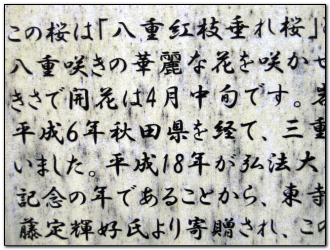 この桜は「八重紅枝垂れ桜」
八重咲きの華麗な花を咲かせ
きさで開花は4月中旬です。岩
平成6年秋田県を経て、三重
いました。平成18年が弘法大
記念の年であることから、東寺
藤定輝好氏より寄贈され、この